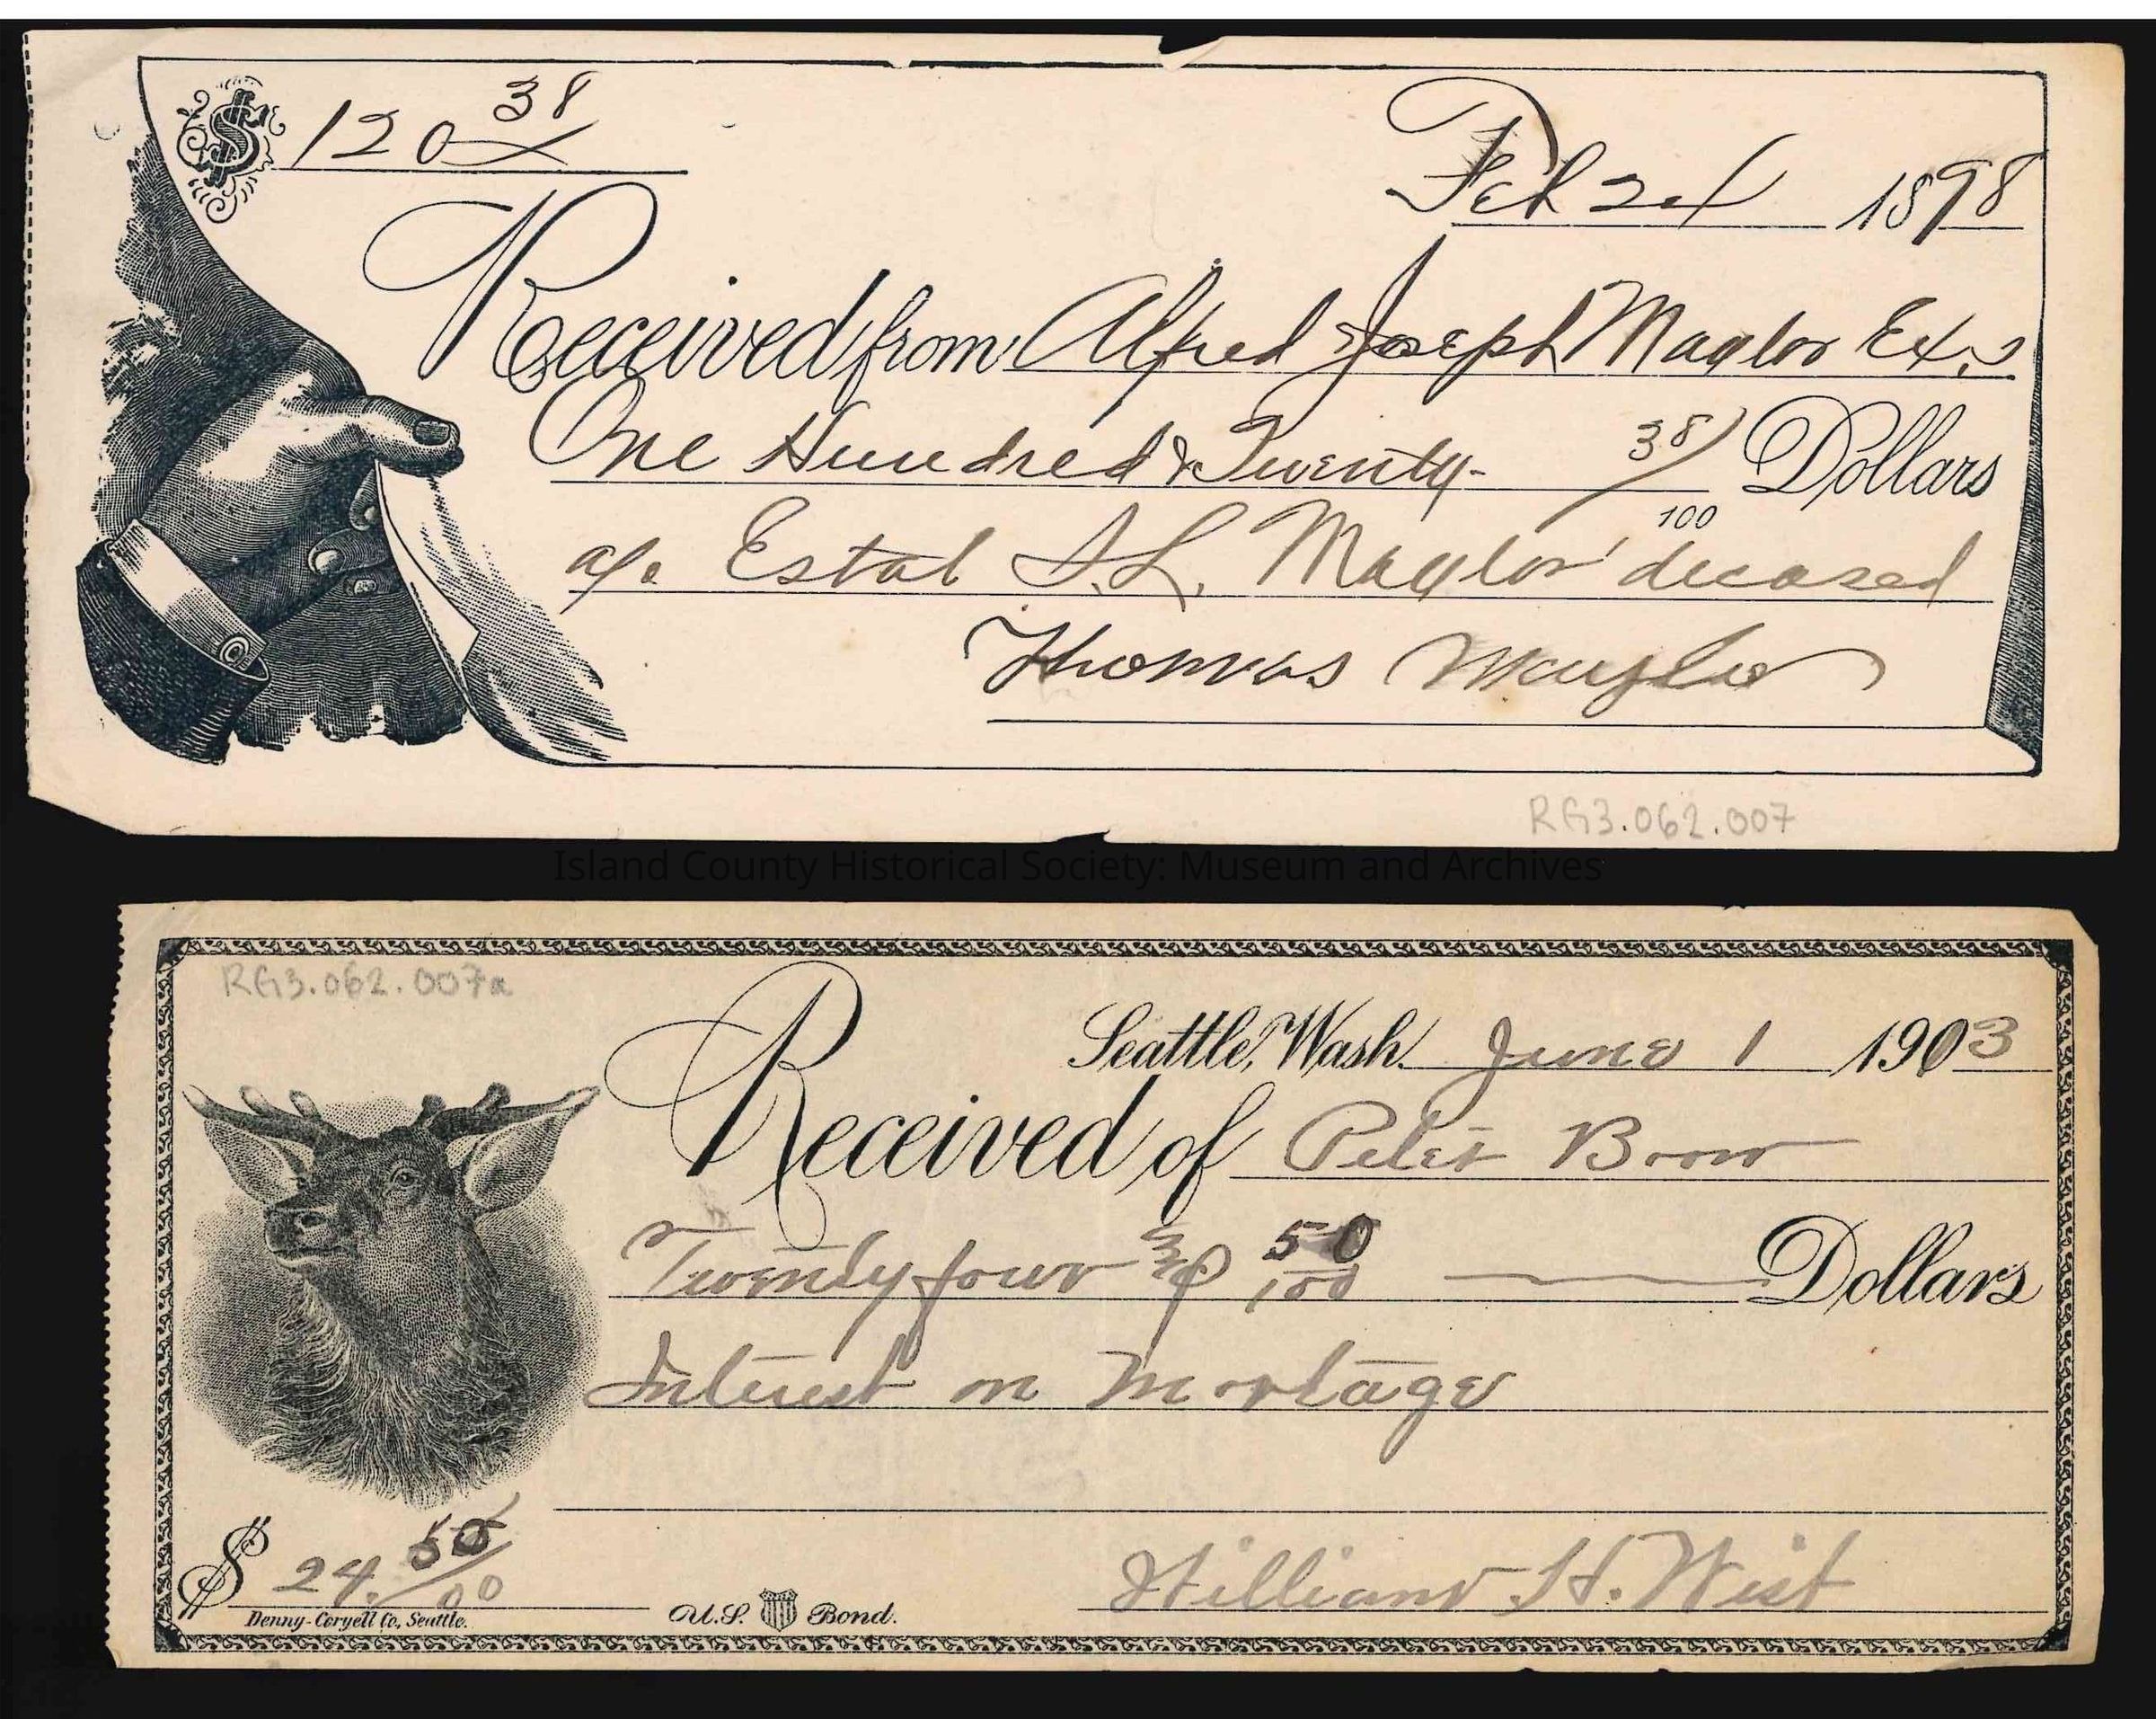 $ 120 38
Feb 24 1898
Received from Alfred & Joseph Maylor Ex.s
One Hundred & Twenty - 38/100 Dollars
a/c Estat S.L. Maylor deceased
Thomas Maylor
RG3.062.007
Island County Historical Society: Museum and Archives
RG3.062.007a
Seattle, Wash. June 1 1903
Received of Peter
Twenty four & 50/100 Dollars
Interest on Mortage
$ 24. 50/00
William H. West
Denny-Coryell Co., Seattle.
U.S. Bond.